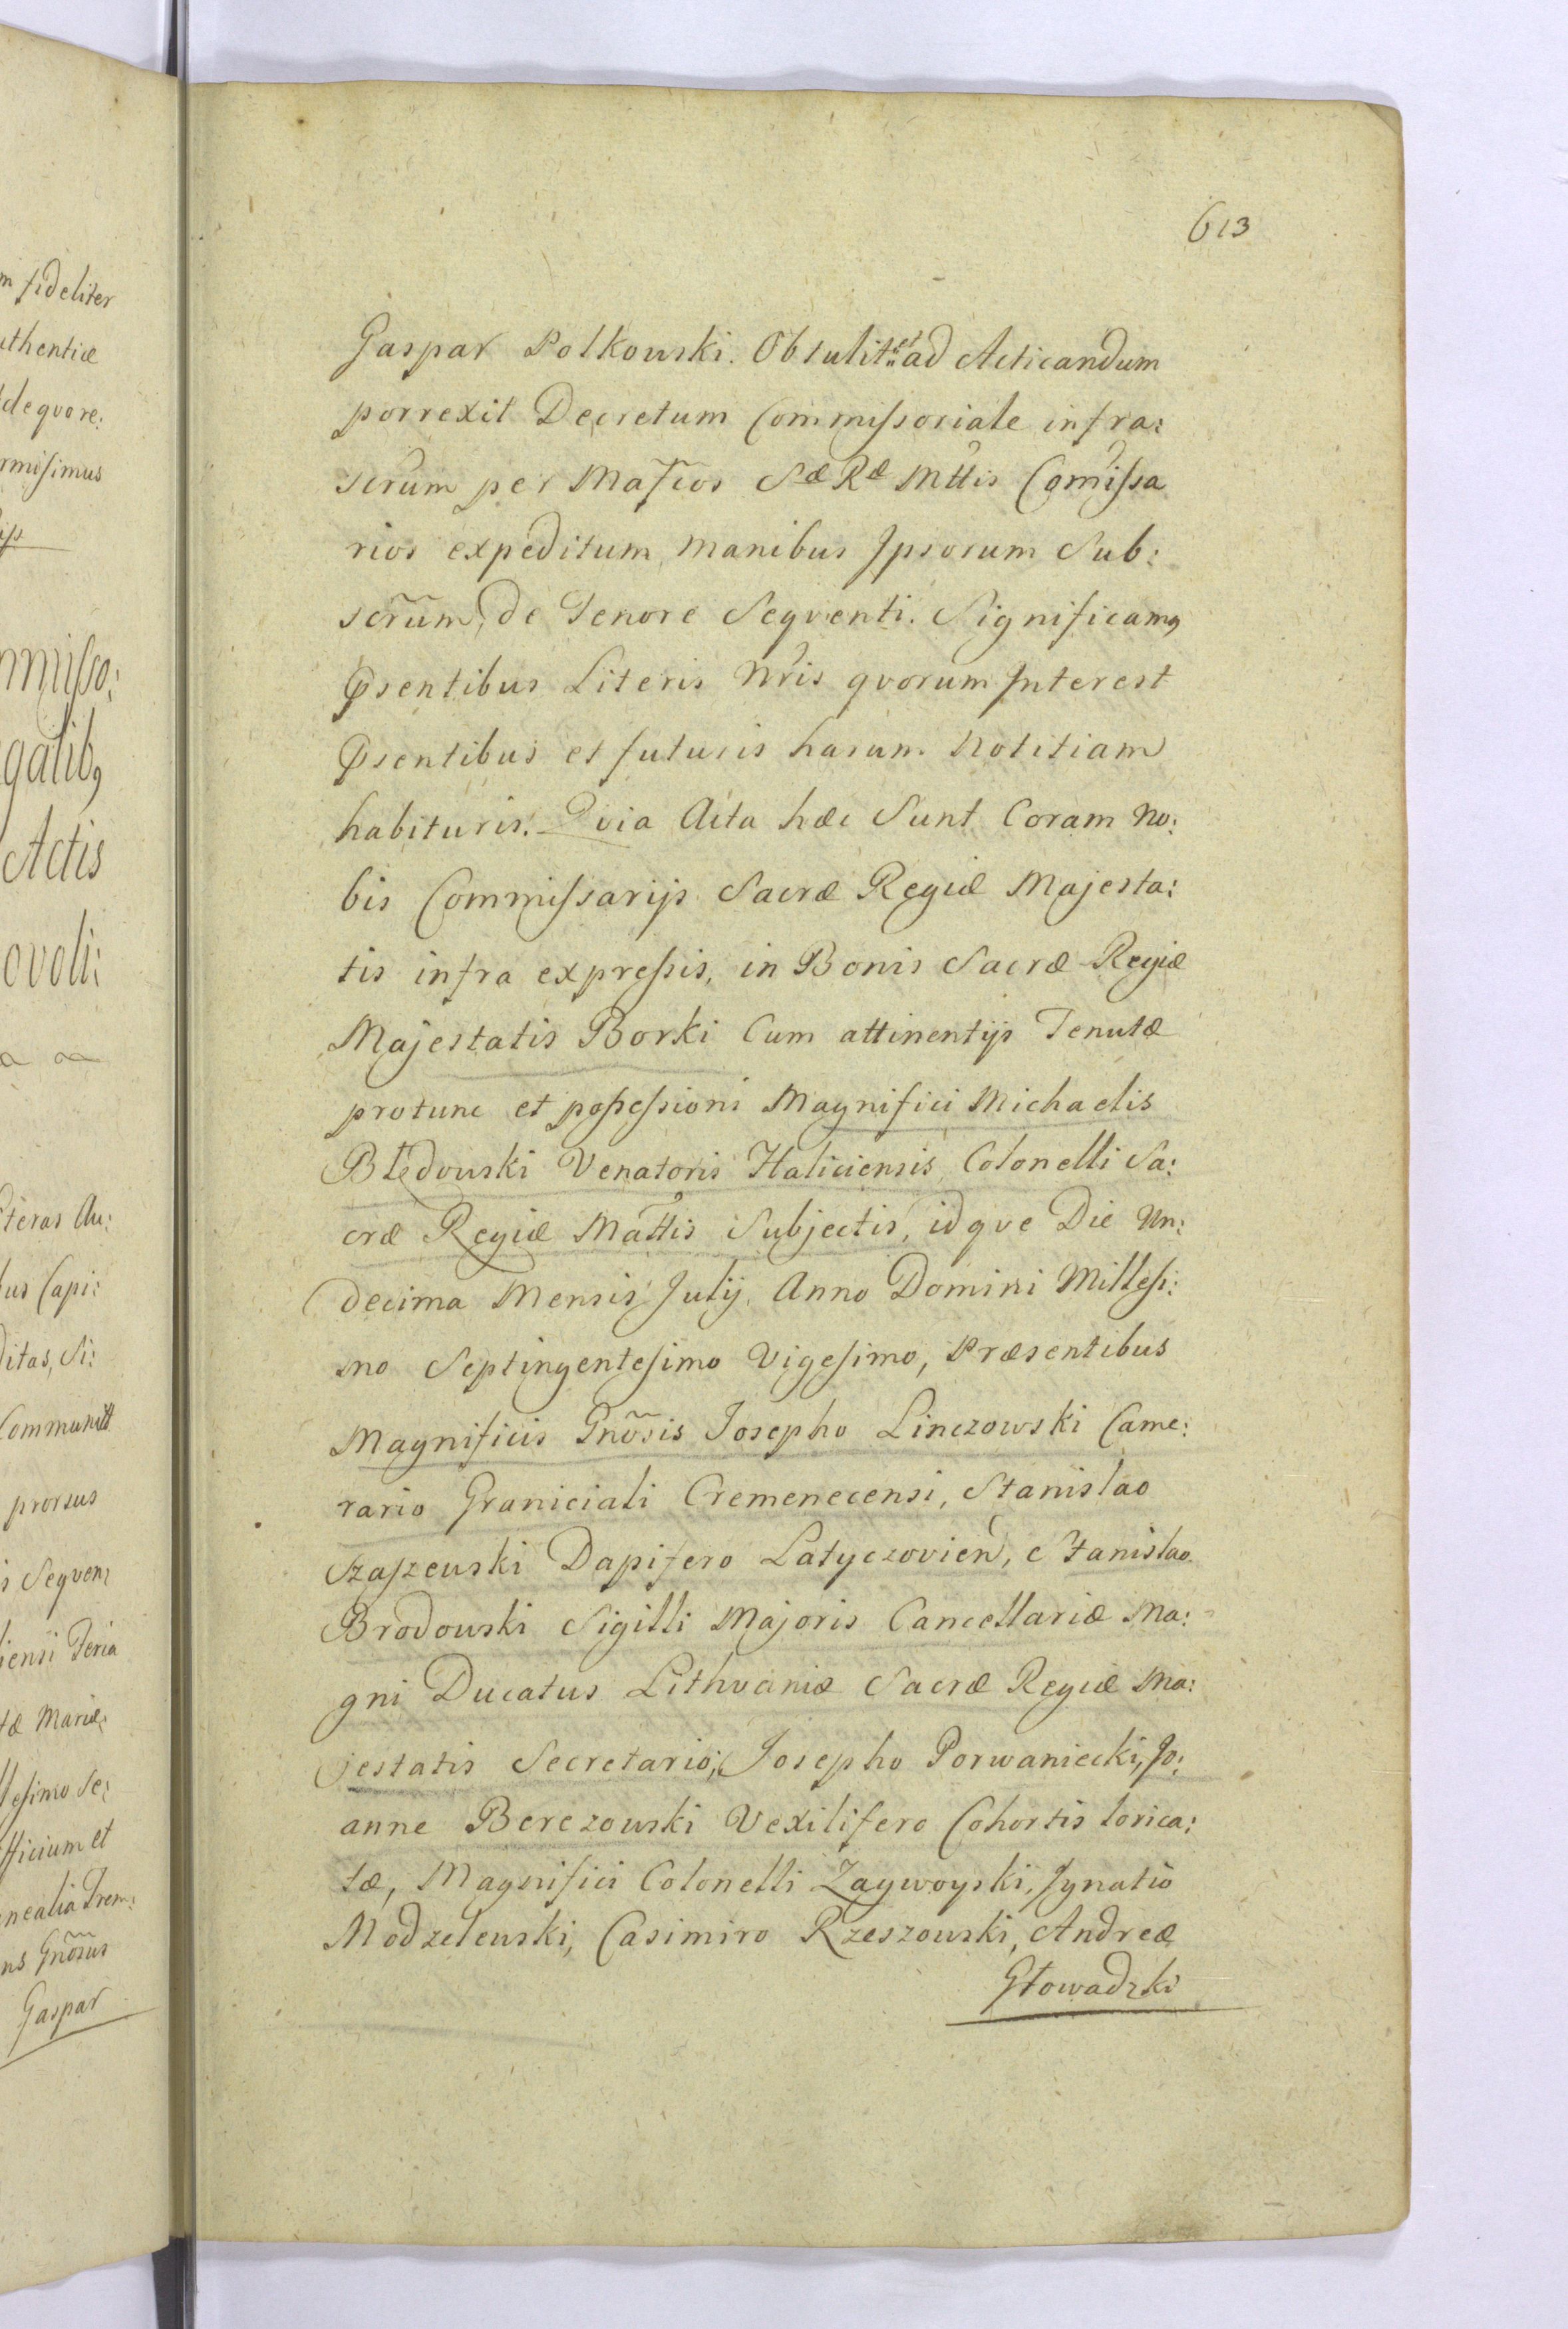 613
Gaspar Polkowski. Obtulit et ad Acticandum
porrexit Decretum Commissoriale infra:
scrũm per Mafcos Sæ Ræ Mttis Comissa
rios expeditum, manibus Ipsorum Sub:
scrũm, de Tenore Seqventi. Significamus
Psentibus Literis Nris qvorum Interest
Psentibus et futuris harum Notitiam
habituris. Qvia Acta hæc Sunt Coram No:
bis Commissarijs Sacræ Regiæ Majesta:
tis infra expressis, in Bonis Sacræ Regiæ
Majestatis Borki Cum attinentijs Tenutæ
protunc et possessioni Magnifici Michaelis
Błędowski Venatoris Haliciensis, Colonelli Sa:
cræ Regiæ Mattis Subjectis, idqve Die Un:
decima Mensis Julij. Anno Domini Millesi:
mo Septingentesimo Vigesimo, Præsentibus
Magnificis Gnõsis Josepho Linczowski Came:
rario Graniciali Cremenecensi, Stanislao
Szaszewski Dapifero Latyczovien, Stanislao
Brodowski Sigilli Majoris Cancellariæ Ma:
gni Ducatus Lithvaniæ Sacræ Regiæ Ma:
jestatis Secretario, Josepho Porwaniecki, Jo:
anne Berezowski Vexilifero Cohortis lorica:
tæ, Magnifici Colonelli Zagwoyski, Ignatio
Modzelewski, Casimiro Rzeszowski, Andreæ
Głowadzki
m fideliter
uthenticæ
de qvo re:
rmisimus
mmisso:
galib9
Actis
ovoli:
teras Au:
bus Capi:
ditas, Si:
Communitt
prorsus
s Seqven
iensi Feria
tæ Mariæ
llesimo Se:
fficium et
nealia Trem:
ns Gnõsus
Gaspar